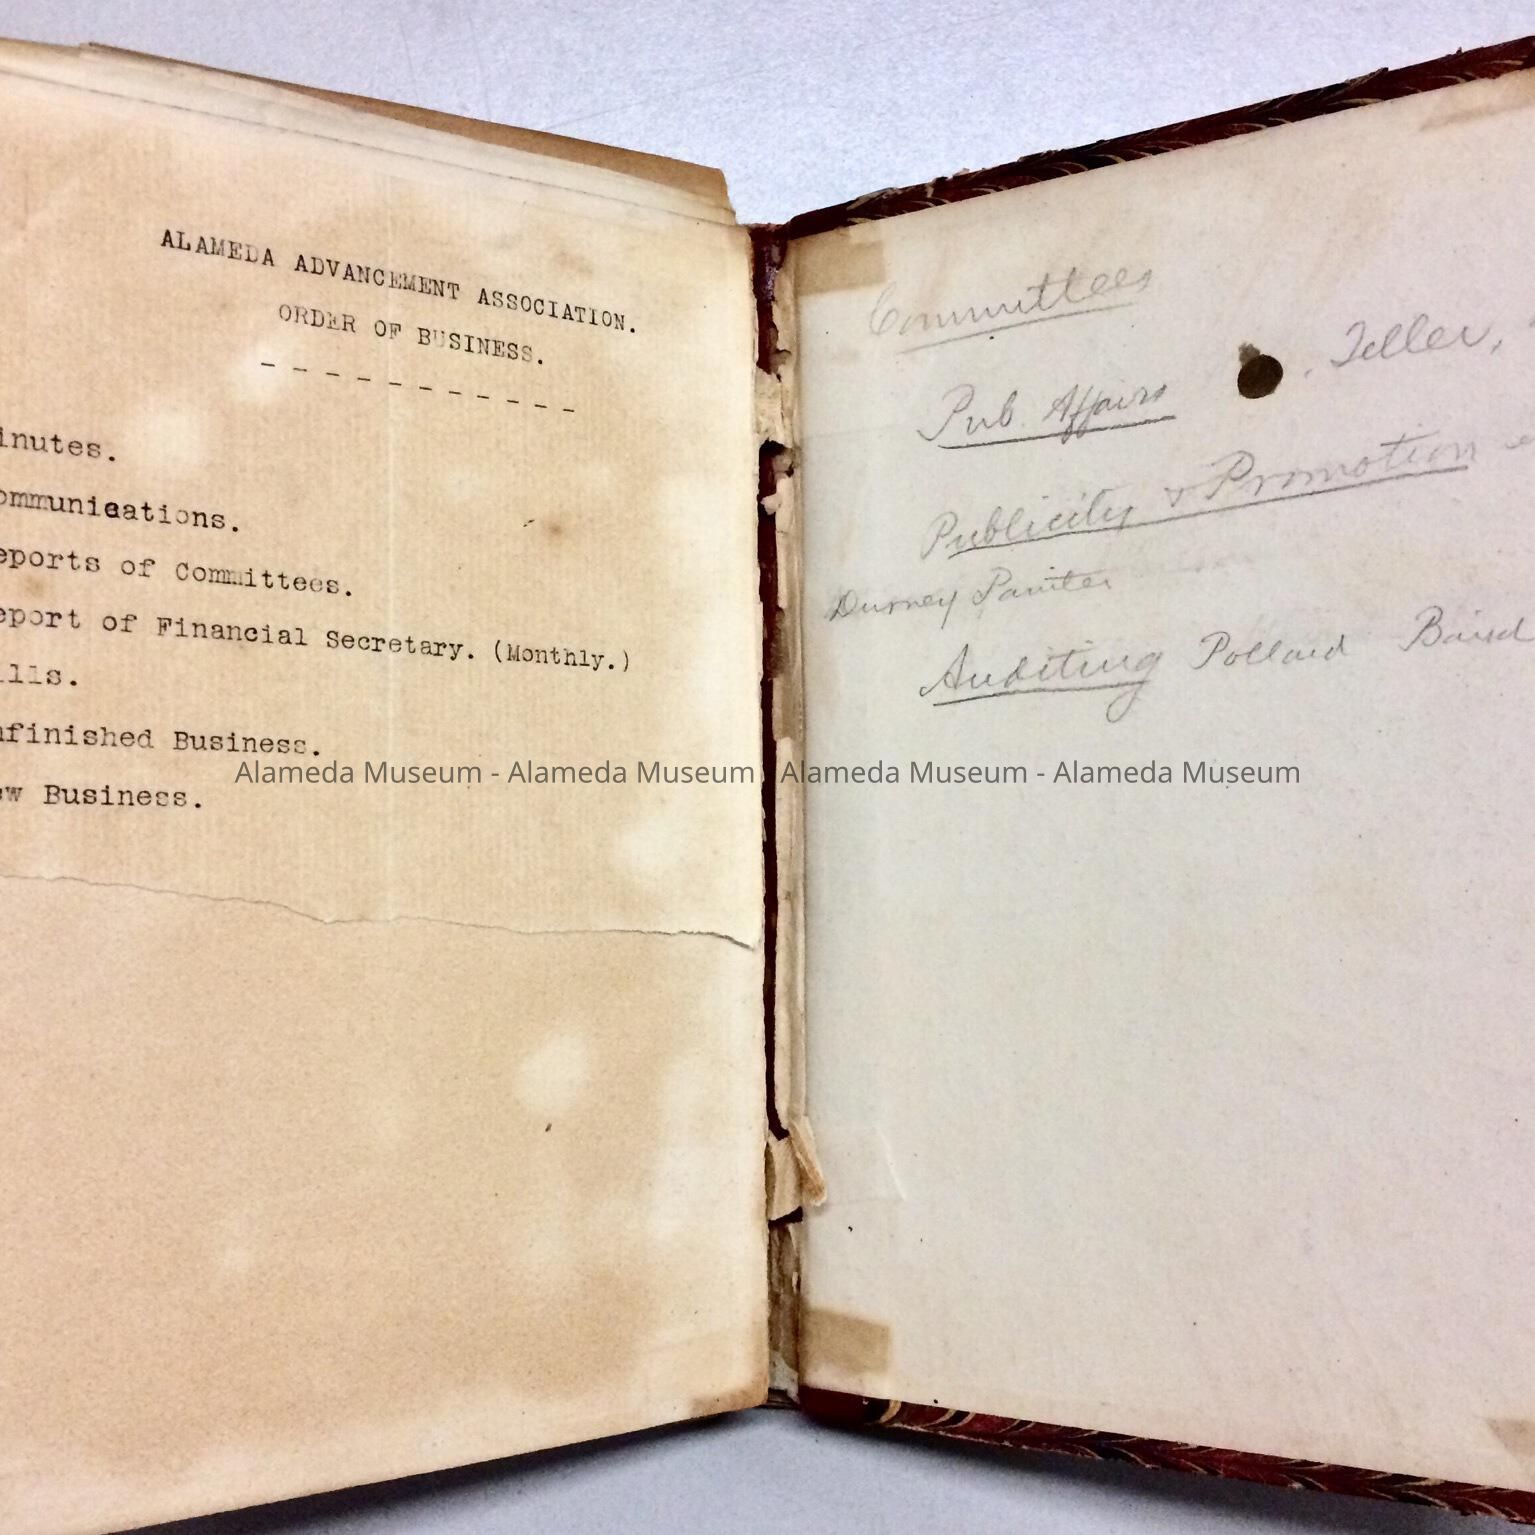 ALAMEDA ADVANCEMENT ASSOCIATION.
ORDER OF BUSINESS.
- - - - - - - - - - -
inutes.
ommunications.
eports of Committees.
eport of Financial Secretary. (Monthly.)
ills.
nfinished Business.
ew Business.
Committees
Pub. Affairs . Teller,
Publicity & Promotion
Durney Painter
Auditing Pollard Baird
Alameda Museum - Alameda Museum - Alameda Museum - Alameda Museum